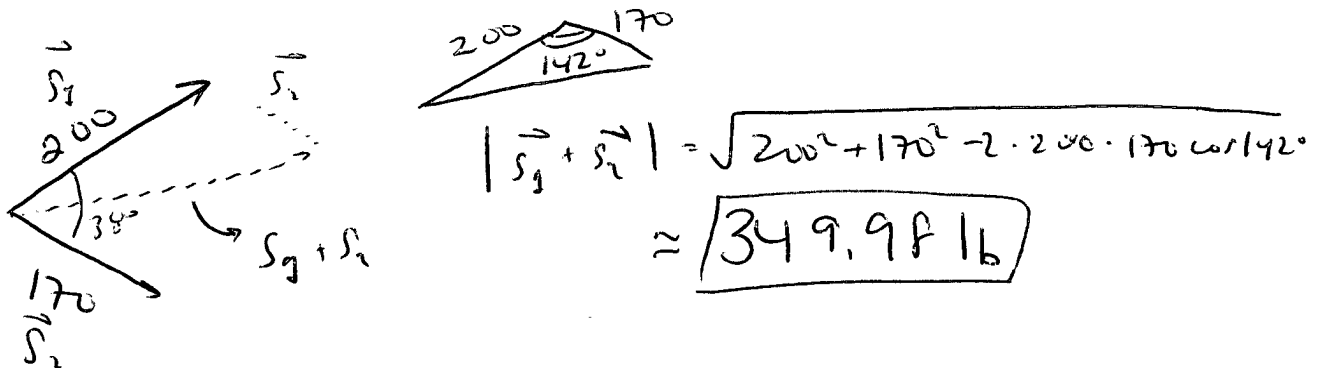 S⃗₁
200
S⃗₂
38°
S₁ + S₂
170
S⃗₂
200 170
142°
| S⃗₁ + S⃗₂ | = √200² + 170² - 2 · 200 · 170 cos 142°
≈ 349.98 lb